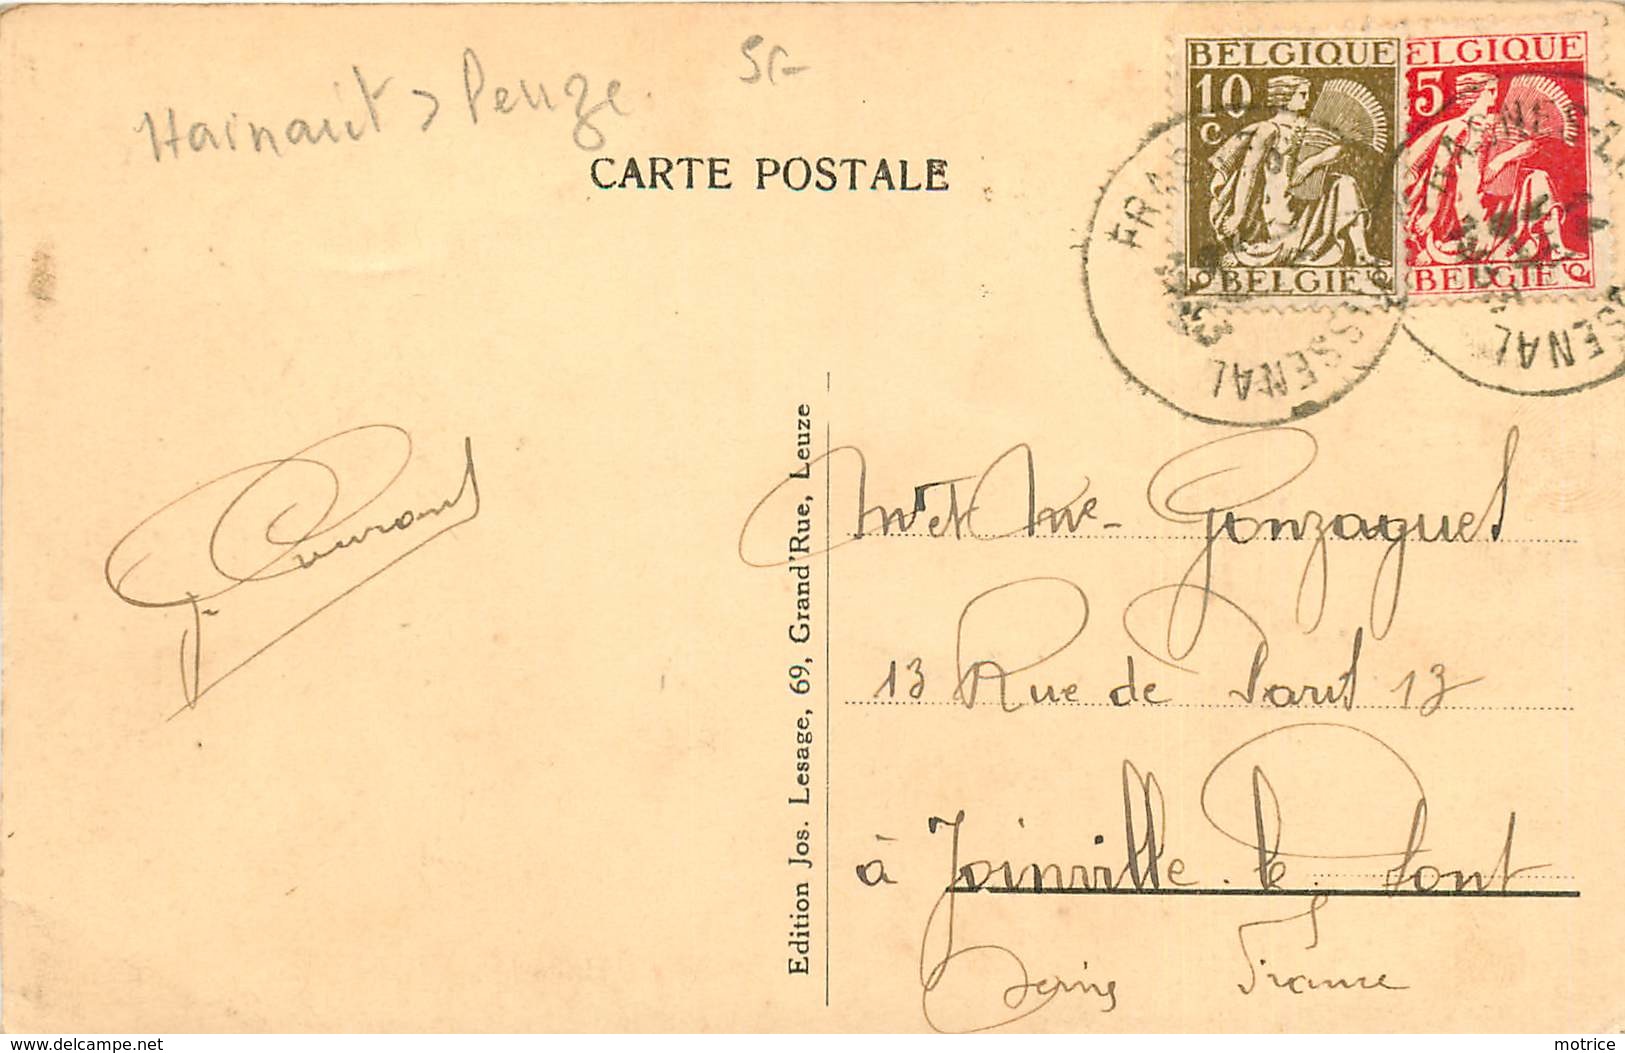 Hainaut > Peuze.
5-
CARTE POSTALE
BELGIQUE
10
c
BELGIE
ELGIQUE
5
BELGIE
FRAS
ISSENAL
ASNES-LE
SSENAL
Edition Jos. Lesage, 69, Grand'Rue, Leuze
Mr et Me - Gonzagues
13 Rue de Paris 13
à Joinville . le . Pont
Seine France
delcampe.net
motrice